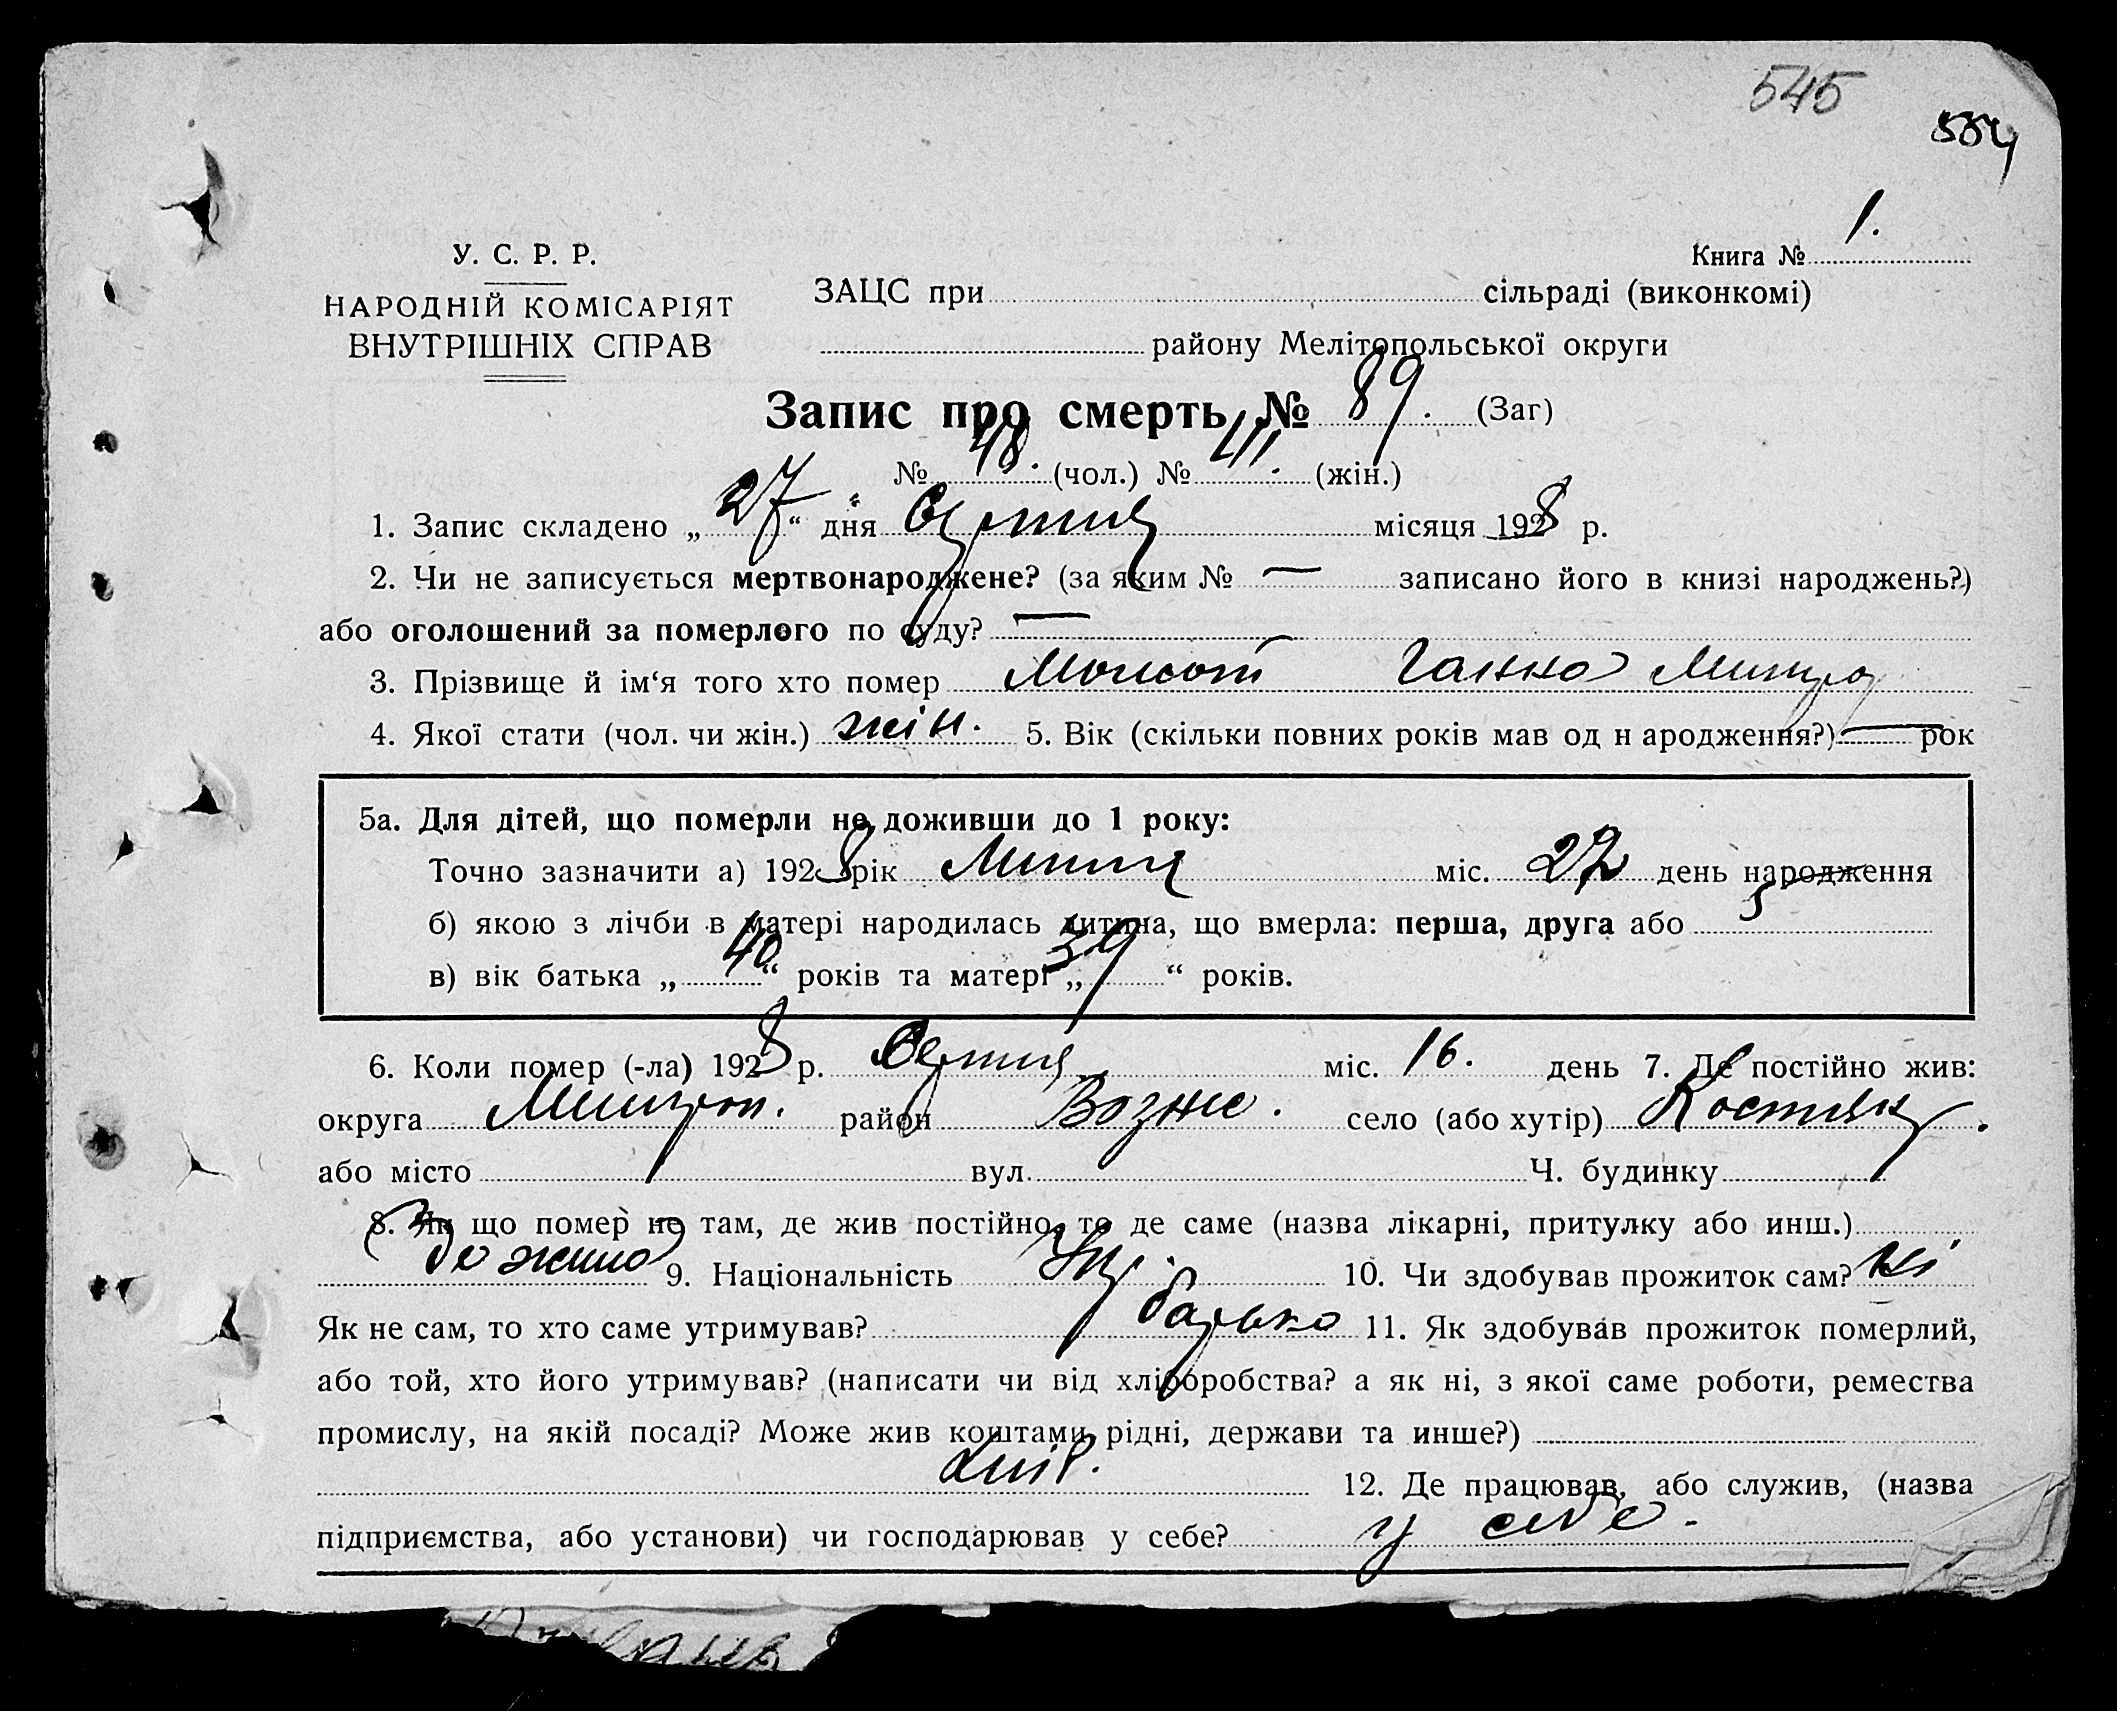 545
554
У. С. Р. Р.
Книга № 1.
НАРОДНІЙ КОМІСАРІЯТ
ВНУТРІШНІХ СПРАВ
ЗАЦС при сільраді (виконкомі)
району Мелітопольської округи
Запис про смерть № 89. (Заг)
№ 48. (чол.) № 41. (жін.)
1. Запис складено „27“ дня Серпня місяця 1928 р.
2. Чи не записується мертвонароджене? (за яким № — записано його в книзі народжень?)
або оголошений за померлого по суду? —
3. Прізвище й ім‘я того хто помер Ганна
4. Якої стати (чол. чи жін.) жін. 5. Вік (скільки повних років мав од н ародження?) — рок
5а. Для дітей, що померли не доживши до 1 року:
Точно зазначити а) 1928 рік Липня міс. 22 день народження
б) якою з лічби в матері народилась дитина, що вмерла: перша, друга або 5
в) вік батька „40“ років та матері „39“ років.
6. Коли помер (-ла) 1928 р. Серпня міс. 16. день 7. Де постійно жив:
округа Мелітоп. район Возне. село (або хутір)
або місто вул. Ч. будинку
8. Як що помер не там, де жив постійно, то де саме (назва лікарні, притулку або инш.)
де жила 9. Національність Укр. 10. Чи здобував прожиток сам? ні
Як не сам, то хто саме утримував? батько 11. Як здобував прожиток померлий,
або той, хто його утримував? (написати чи від хліборобства? а як ні, з якої саме роботи, ремества
промислу, на якій посаді? Може жив коштами рідні, держави та инше?)
хліб. 12. Де працював, або служив, (назва
підприємства, або установи) чи господарював у себе? у себе.